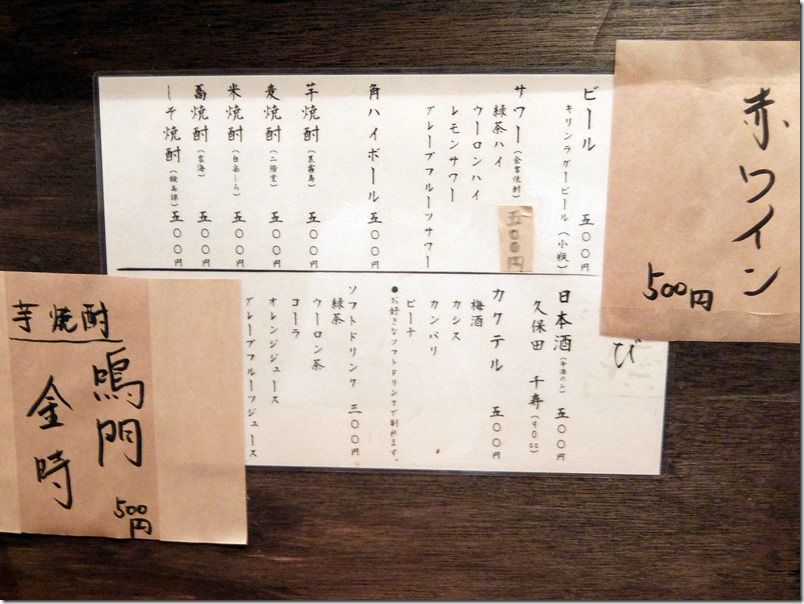 赤ワイン
500円
ビール 五〇〇円
キリンラガービール(小瓶)
サワー(金宮焼酎) 五〇〇円
緑茶ハイ
ウーロンハイ
レモンサワー
グレープフルーツサワー
角ハイボール 五〇〇円
芋焼酎(黒霧島) 五〇〇円
麦焼酎(二階堂) 五〇〇円
米焼酎(白岳しろ) 五〇〇円
蕎焼酎(雲海) 五〇〇円
しそ焼酎(鍛高譚) 五〇〇円
び
日本酒(冷酒のみ) 五〇〇円
久保田 千寿(90cc)
カクテル 五〇〇円
梅酒
カシス
カンパリ
ピーチ
●お好きなソフトドリンクで割れます。
ソフトドリンク 三〇〇円
緑茶
ウーロン茶
コーラ
オレンジジュース
グレープフルーツジュース
芋焼酎
鳴門
金時
500円